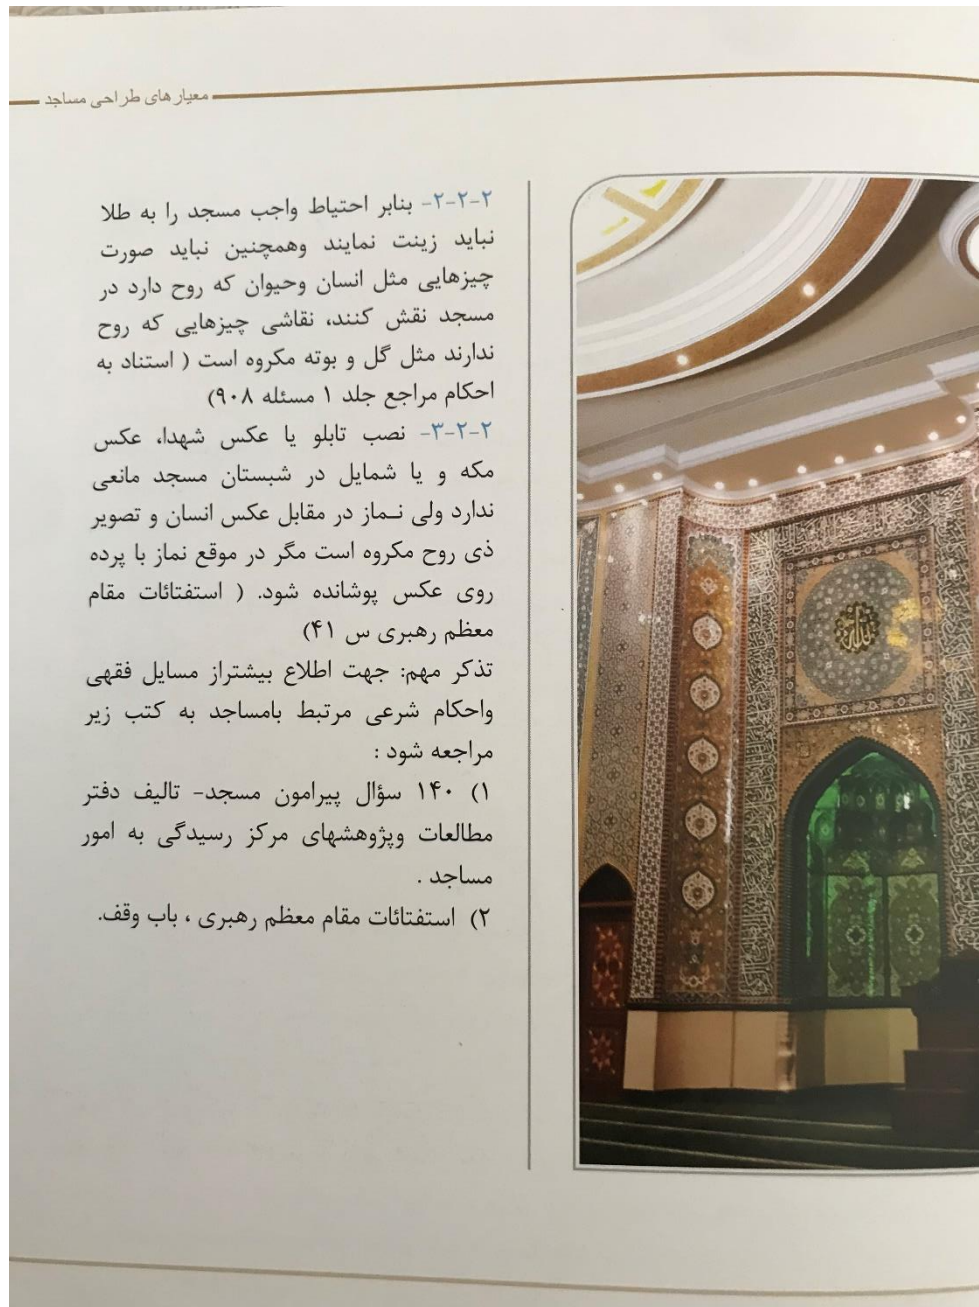 معیارهای طراحی مساجد
۲-۲-۲- بنابر احتیاط واجب مسجد را به طلا
نباید زینت نمایند وهمچنین نباید صورت
چیزهایی مثل انسان وحیوان که روح دارد در
مسجد نقش کنند، نقاشی چیزهایی که روح
ندارند مثل گل و بوته مکروه است ( استناد به
احکام مراجع جلد ۱ مسئله ۹۰۸)
۳-۲-۲- نصب تابلو یا عکس شهدا، عکس
مکه و یا شمایل در شبستان مسجد مانعی
ندارد ولی نـماز در مقابل عکس انسان و تصویر
ذی روح مکروه است مگر در موقع نماز با پرده
روی عکس پوشانده شود. ( استفتائات مقام
معظم رهبری س ۴۱)
تذکر مهم: جهت اطلاع بیشتراز مسایل فقهی
واحکام شرعی مرتبط بامساجد به کتب زیر
مراجعه شود :
۱) ۱۴۰ سؤال پیرامون مسجد- تالیف دفتر
مطالعات وپژوهشهای مرکز رسیدگی به امور
مساجد .
۲) استفتائات مقام معظم رهبری ، باب وقف.
الله